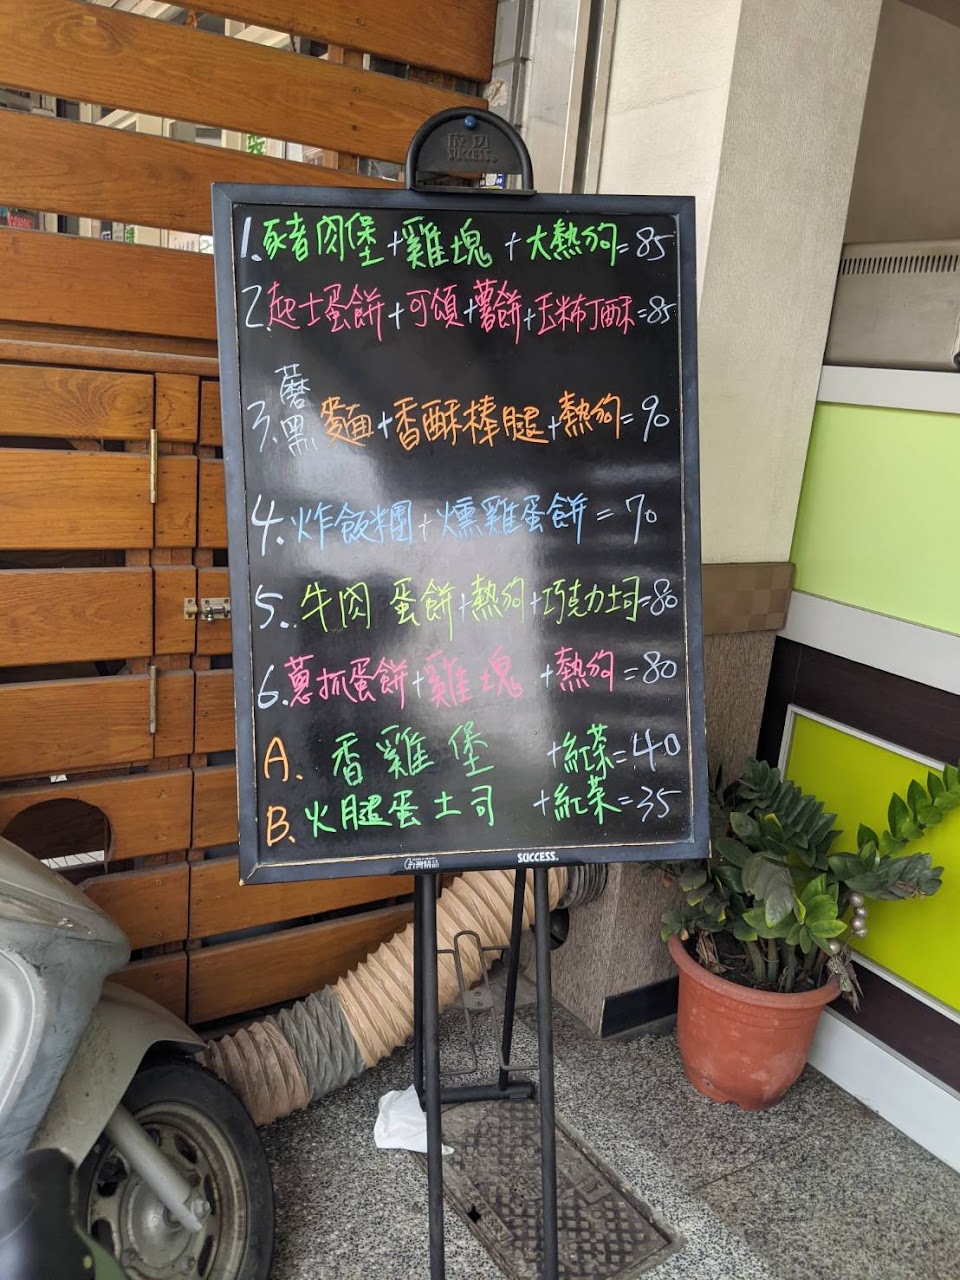 成功
SUCCESS
1.豬肉堡+雞塊+大熱狗=85
2.起士蛋餅+可頌+薯餅+玉米布丁酥=85
蘑
3.黑麵+香酥棒腿+熱狗=90
4.炸飯糰+燻雞蛋餅=70
5.牛肉蛋餅+熱狗+巧克力土司=80
6.蔥抓蛋餅+雞塊+熱狗=80
A.香雞堡+紅茶=40
B.火腿蛋土司+紅茶=35
SUCCESS